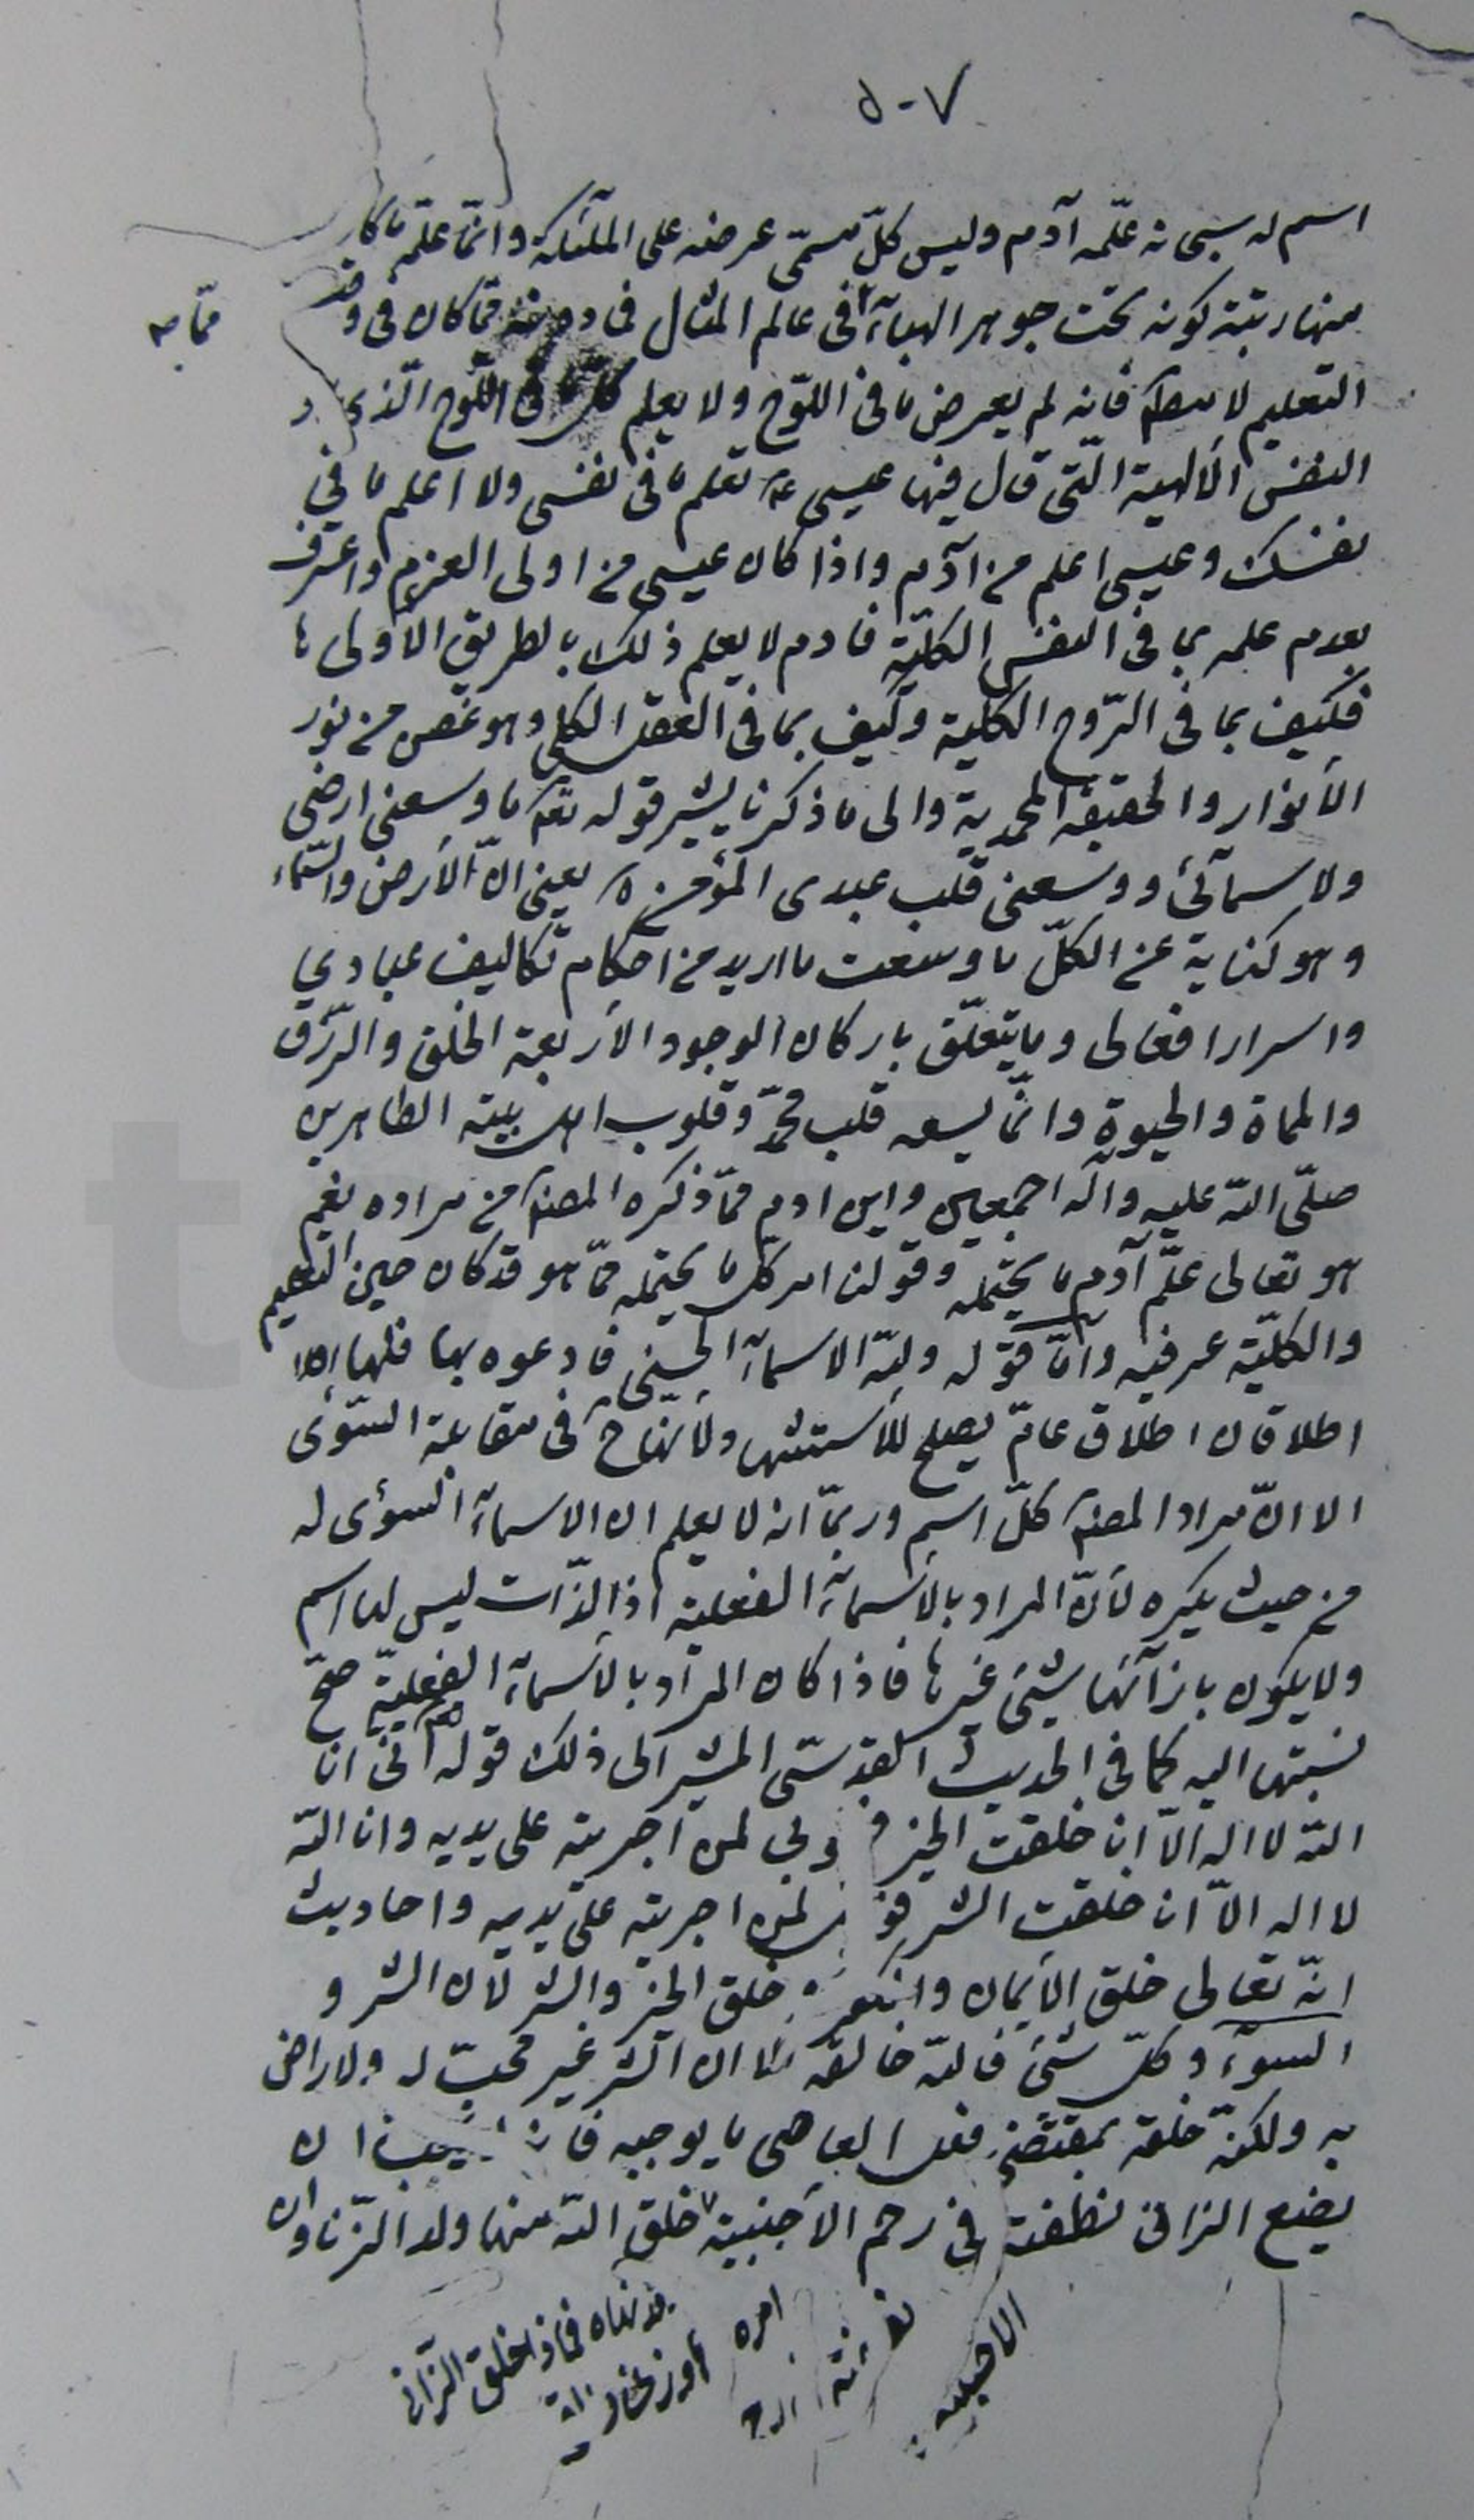 ٥٠٧
اسم له سبحانه علّمه آدم وليس كلّ مسمّى عرضه على الملئكة وانّما علّمه ما كان
منها رتبة كونه تحت جوهر الهبآء فى عالم المثال فى دو فما كان فى وقت
ممّا به
التعليم لا مطلقا فانه لم يعرض ما فى اللوح ولا يعلم كلّ ما فى اللّوح الّذى
النفس الألهية الّتى قال فيها عيسى ع تعلم ما فى نفسى ولا اعلم ما في
نفسك وعيسى اعلم من آدم واذا كان عيسى من اولى العزم واعترف
بعدم علمه بما فى النفس الكلّيّة فادم لا يعلم ذلك بالطريق الأولى
فكيف بما فى الرّوح الكلية وكيف بما فى العقل الكلى وهو غصن من نور
الأنوار والحقيقة المحمدية والى ما ذكرنا يشير قوله تعه ما وسعنى ارضى
ولا سمآئى ووسعنى قلب عبدى المؤمن يعنى انّ الأرض والسّماء
وهو كناية عن الكلّ ما وسعت ما اريد من احكام تكاليف عبادي
واسرار افعالى وما يتعلّق باركان الوجود الأربعة الخلق والرّزق
والمماة والحيوة وانّما يسعه قلب محمّد وقلوب اهل بيته الطاهرين
صلّى اللّه عليه وآله اجمعين واين ادم ممّا ذكره المصنّف من مراده نعم
هو تعالى علّم آدم ما يحتمله وقولنا كل ما يحتمله ممّا هو قد كان حين التعليم
والكلّيّة عرفيه وامّا قوله وللّه الاسمآء الحسنى فادعوه بها فلها
اطلاقان اطلاق عامّ يصلح للأستشهاد لأنّها ح فى مقابلة السّوى
الا انّ مراد المصنّف كلّ اسم وربّما انه لا يعلم ان الاسمآء السوئى له
من حيث يكره لأنّ المراد بالأسمآء الفعلية اذ الذّات ليس لها اسم
ولا يكون بازآئها شيئ غيرها فاذا كان المراد بالأسمآء الفعليّة صحّ
نسبتها اليه كما فى الحديث القدسّى المشير الى ذلك قوله انّى انا
اللّه لا اله الّا انا خلقت الخير لمن اجريته على يديه وانا اللّه
لا اله الّا انا خلقت الشر لمن اجريته على يديه واحاديث
انّه تعالى خلق الأيمان والكفر خلق الخير والشر لان الشر و
السوء وكلّ شئ فاللّه خالقه ان الشر غير محبّ له ولا راض
به ولكنّه خلقه بمقتضى فعل العاصى ما يوجبه ان
يضع الزانى نطفته فى رحم الأجنبية خلق اللّه منها ولد الزّنا وان